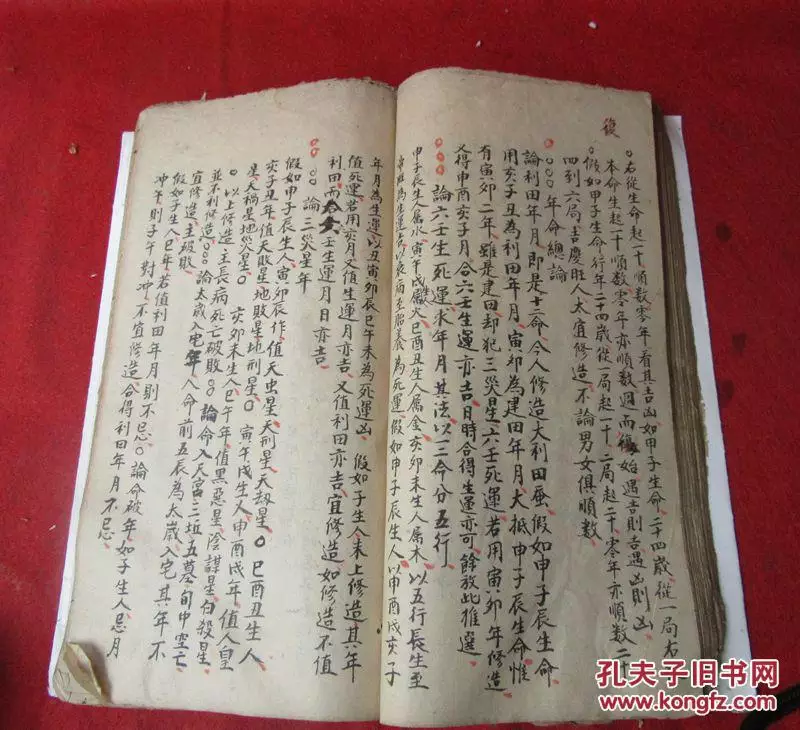 復
右從生命起一十順數零年看其吉凶如甲子生命二十四歲從一局右
本命生起一十順數零年亦順數週而復始遇吉則吉遇凶則凶
假如甲子生命行年二十四歲從一局起一十二局起二十零年亦順數二十
四到六局吉慶旺人大宜修造不論男女俱順數
年命總論
論利田年月即是十二命今人修造大利田蚕假如申子辰生命惟
用亥子丑為利田年月寅卯為建田年月大抵申子辰生命
有寅卯二年雖是建田却犯三災星六壬死運若用寅卯年修造
又得申酉亥子月合六壬生運亦吉日時合得生運亦可餘放此推選
論六壬生死運求年月其法以三命分五行
申子辰生人属水寅午戌属火巳酉丑生人属金亥卯未生人属木以五行長生至
帝旺為生運吉以衰病至胎養為死運假如申子辰生人以申酉戌亥子
年月為生運以丑寅卯辰巳午未為死運凶假如子生人未上修造其年
值死運若用亥月又值生運月亦吉又值利田亦吉宜修造如修造不值
利田而六壬生運月日亦吉
論三災星年
假如申子辰生人寅卯辰作值天虫星天刑星天劫星巳酉丑生人
亥子丑年值天敗星地敗星地刑星寅午戌生人申酉戌年值人皇
星天禍星地災星亥卯未生人巳午年值黑惡星陰謀星白殺星
以上修造主長病死亡破敗論命入天宮三坵五墓旬中空亡
並不利修造論太歲入宅年八命前五辰為太歲入宅其年不
宜修造主破敗
假如子生人巳年若值利田年月則不忌論命破年如子生人忌月
冲午則子午對冲不宜修造合得利田年月不忌
孔夫子旧书网
kongfz.com